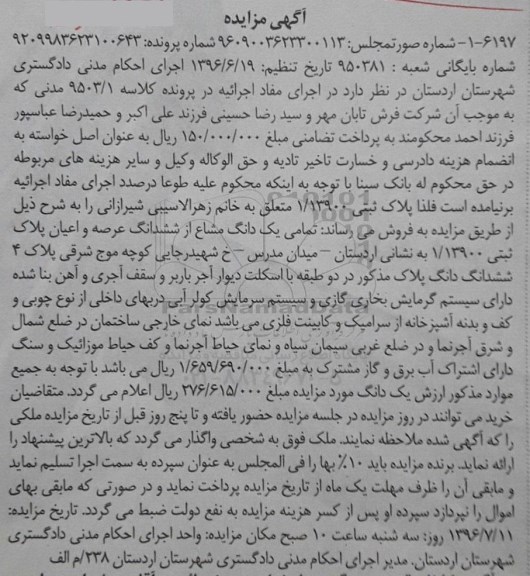 آگهی مزایده
۶۱۹۷-۱- شماره صورتمجلس: ۹۶۰۹۰۰۳۶۲۳۳۰۰۱۱۳ شماره پرونده: ۹۲۰۹۹۸۳۶۲۳۱۰۰۶۴۳
شماره بایگانی شعبه : ۹۵۰۳۸۱ تاریخ تنظیم: ۱۳۹۶/۶/۱۹ اجرای احکام مدنی دادگستری
شهرستان اردستان در نظر دارد در اجرای مفاد اجرائیه در پرونده کلاسه ۹۵۰۳/۱ مدنی که
به موجب آن شرکت فرش تابان مهر و سید رضا حسینی فرزند علی اکبر و حمیدرضا عباسپور
فرزند احمد محکومند به پرداخت تضامنی مبلغ ۱۵۰/۰۰۰/۰۰۰ ریال به عنوان اصل خواسته به
انضمام هزینه دادرسی و خسارت تاخیر تادیه و حق الوکاله وکیل و سایر هزینه های مربوطه
در حق محکوم له بانک سینا با توجه به اینکه محکوم علیه طوعا درصدد اجرای مفاد اجرائیه
برنیامده است فلذا پلاک ثبتی ۱/۱۳۹۰۰ متعلق به خانم زهرالاسیبی شیرازانی را به شرح ذیل
از طریق مزایده به فروش می رساند: تمامی یک دانگ مشاع از ششدانگ عرصه و اعیان پلاک
ثبتی ۱/۱۳۹۰۰ به نشانی اردستان – میدان مدرس – خ شهیدرجایی کوچه موج شرقی پلاک ۴
ششدانگ دانگ پلاک مذکور در دو طبقه با اسکلت دیوار آجر باربر و سقف آجری و آهن بنا شده
دارای سیستم گرمایش بخاری گازی و سیستم سرمایش کولر آبی دربهای داخلی از نوع چوبی و
کف و بدنه آشپزخانه از سرامیک و کابینت فلزی می باشد نمای خارجی ساختمان در ضلع شمال
و شرق آجرنما و در ضلع غربی سیمان سیاه و نمای حیاط آجرنما و کف حیاط موزائیک و سنگ
دارای اشتراک آب برق و گاز مشترک به مبلغ ۱/۶۵۹/۶۹۰/۰۰۰ ریال می باشد با توجه به جمیع
موارد مذکور ارزش یک دانگ مورد مزایده مبلغ ۲۷۶/۶۱۵/۰۰۰ ریال اعلام می گردد. متقاضیان
خرید می توانند در روز مزایده در جلسه مزایده حضور یافته و تا پنج روز قبل از تاریخ مزایده ملکی
را که آگهی شده ملاحظه نمایند. ملک فوق به شخصی واگذار می گردد که بالاترین پیشنهاد را
ارائه نماید. برنده مزایده باید ۱۰٪ بها را فی المجلس به عنوان سپرده به سمت اجرا تسلیم نماید
و مابقی آن را ظرف مهلت یک ماه از تاریخ مزایده پرداخت نماید و در صورتی که مابقی بهای
اموال را نپردازد سپرده او پس از کسر هزینه مزایده به نفع دولت ضبط می گردد. تاریخ مزایده:
۱۳۹۶/۷/۱۱ روز: سه شنبه ساعت ۱۰ صبح مکان مزایده: واحد اجرای احکام مدنی دادگستری
شهرستان اردستان. مدیر اجرای احکام مدنی دادگستری شهرستان اردستان ۲۳۸/م الف